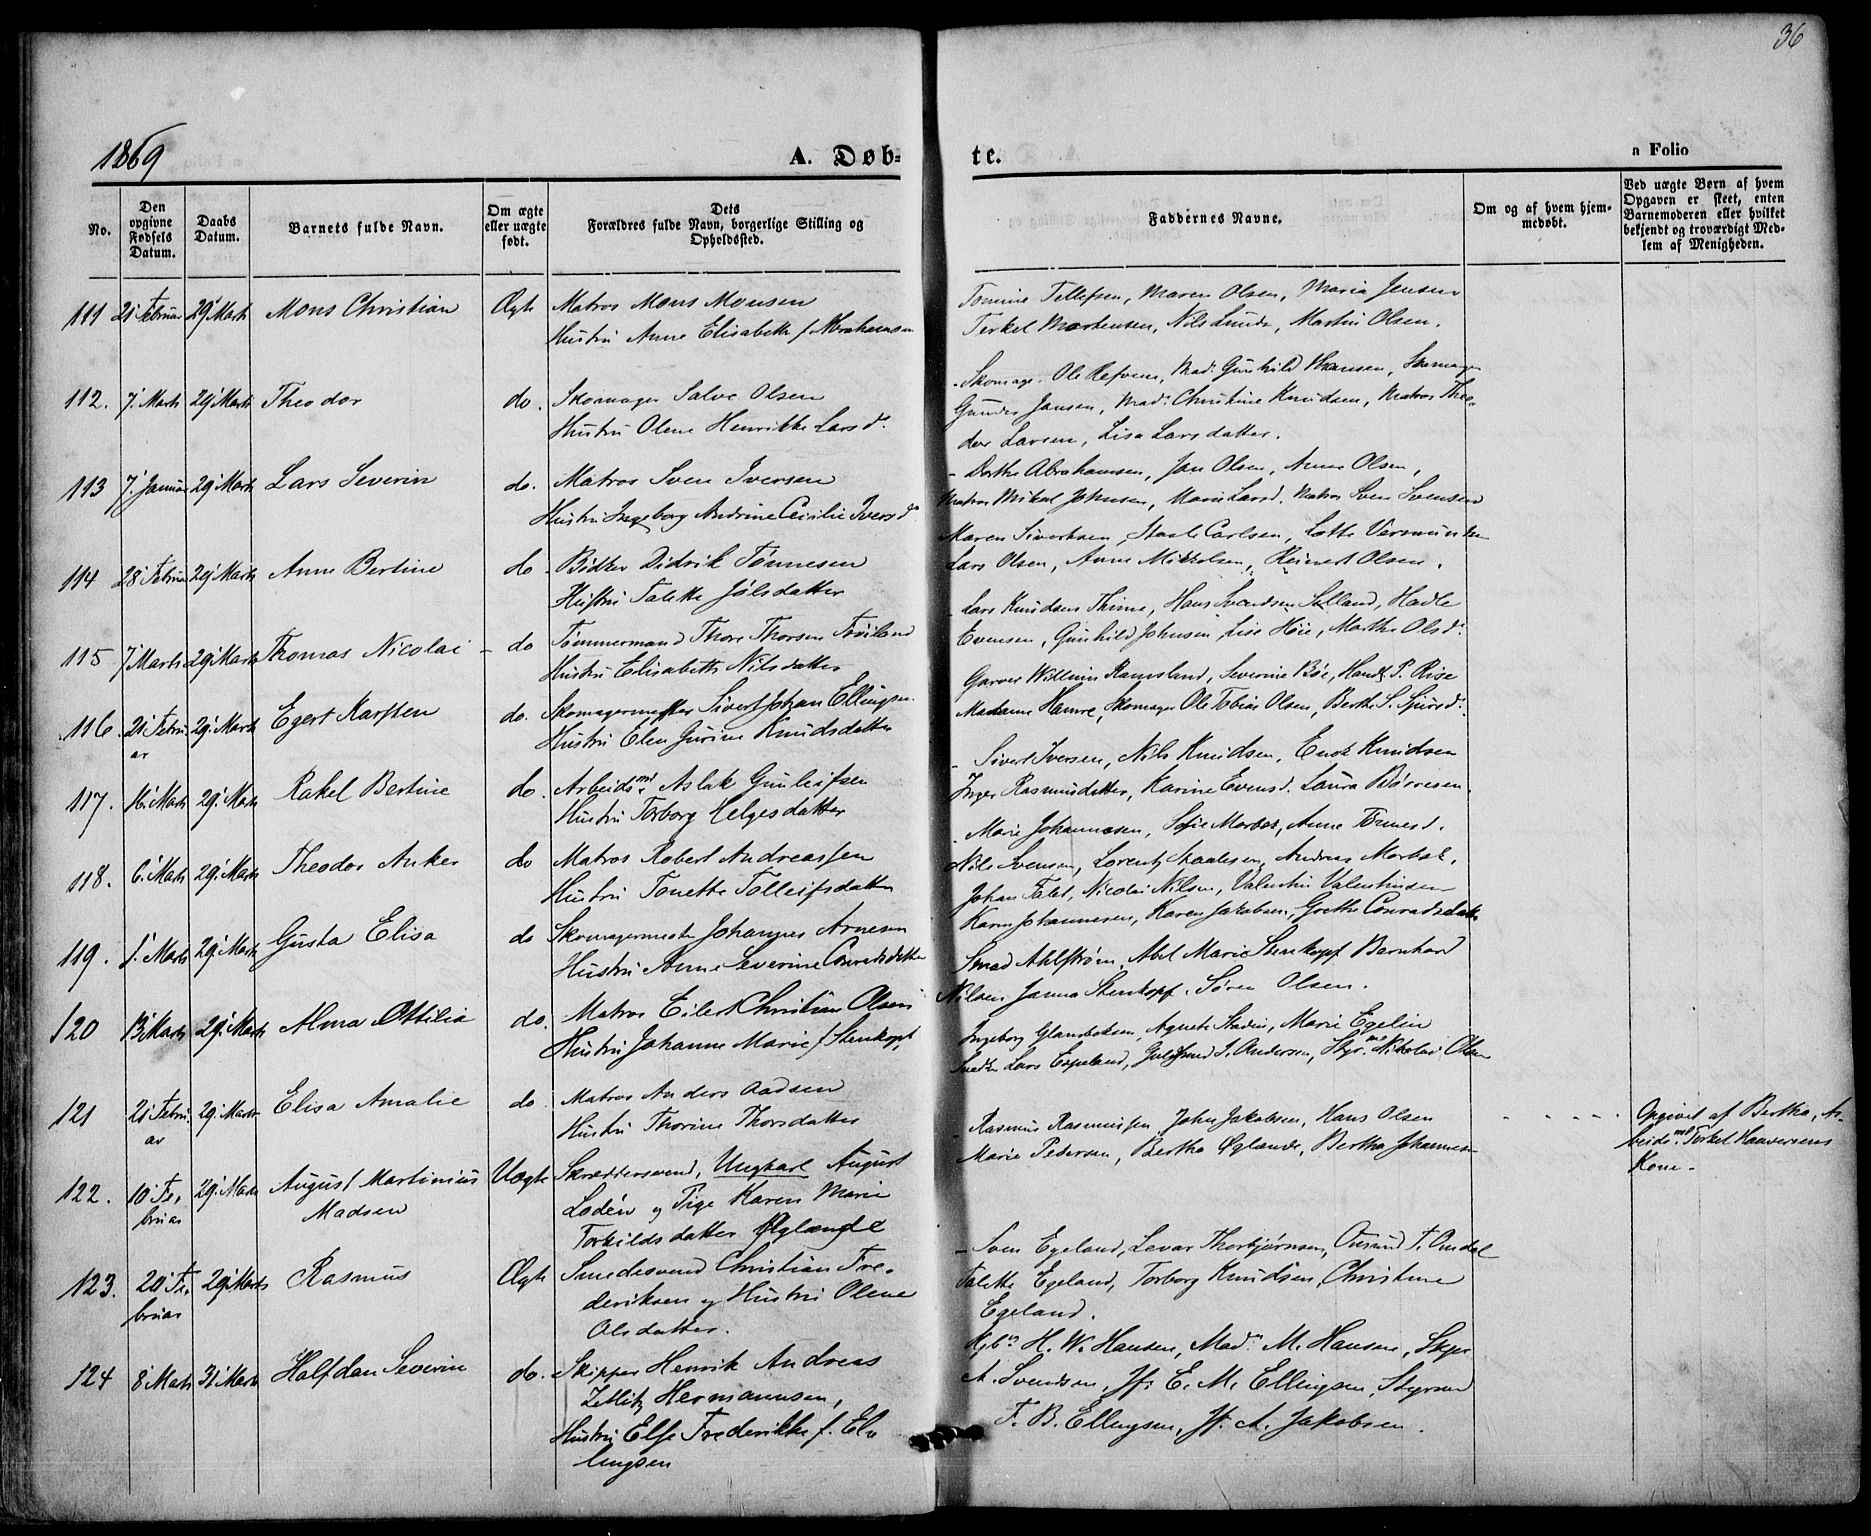 36
1869
A. Døb-
te.
a Folio
No.
Den opgivne Fødsels Datum.
Daabs Datum.
Barnets fulde Navn.
Om ægte eller uægte født.
Dets Forældres fulde Navn, borgerlige Stilling og Opholdssted.
Faddernes Navne.
Om og af hvem hjemmedøbt.
Ved uægte Børn af hvem Opgaven er skeet, enten Barnemoderen eller hvilket bekjendt og troværdigt Medlem af Menigheden.
111 21 Februar 29 Marts Mons Christian Ægte Matros Mons Monsen
Hustru Anne Elisabeth f. Abrahamsen
Tomine Tellefsen, Maren Olsen, Maria Jensen
Terkel Mortensen, Nils Lunde, Martin Olsen.
112. 7. Marts 29 Marts Theodor do. Skomager Salve Olsen
Hustru Olene Henrikke Larsd.
Ole Refven, Mad. Gunhild Hansen,
Gunder Jansen, Mad. Christine Knudsen, Matros Theo-
dor Larsen, Lisa Larsdatter.
113 7. Januar 29 Marts Lars Severin do. Matros Sven Iversen
Hustru Ingeborg Andrine Cecilie Iversd.
- Dorthe Abrahamsen, Jan Olsen, Anne Olsen,
Matros Mikal Johnsen, Marie Larsd. Matros Sven Svensen
114 28 Februar 29 Marts Anne Bertine do. Bødker Didrik Tønnesen
Hustru Talette Jølsdatter
Maren Sivertsen, Staale Carlsen, Lotte
Lars Olsen, Anne Mikkelsen, Reinert Olsen.
115 7 Marts 29 Marts Thomas Nicolai - do Tømmermand Thore Thorsen Frøiland
Hustru Elisabeth Nilsdatter
- Lars Knudsen Thime, Hans Svendsen Selland, Hadle
Evensen, Gunhild Johnsen, Lise Høie, Marthe Olsd.
116. 21 Febru-
ar 29. Marts Egert Karsten do. Skomagermester Sivert Johan Ellingsen
Hustru Elen Gurine Knudsdatter
Garver Willum Ramsland, Severine Bøe, P. Rise
Madame Hamre, Skomager Ole Tobias Olsen, Berthe S.
117. 16. Marts 29. Marts Rakel Bertine do. Arbeidsmd. Aslak Gunleifsen
Hustru Torborg Helgesdatter
- Sivert Iversen, Nils Knudsen, Enok Knudsen
Inger Rasmusdatter, Karine Evensd. Laura Børresen.
118. 6. Marts 29. Marts Theodor Anker do Matros Robert Andreassen
Hustru Tonette Tolleifsdatter
Marie Johannesen, Sofie Morbek, Anne Tønnesd.
Nils Svensen, Lorentz Staalesen, Andreas Morbek.
119. 1. Marts 29. Marts Gusta Elisa do Skomagermester Johannes Arnesen
Hustru Anne Severine Conradsdatter
Johan Falet, Nicolai Nilsen, Valentin Valentinsen
Karen Johannesen, Karen Jakobsen, Grethe Conradsdatter
120 13 Marts 29. Marts Alma Ottilia do. Matros Eilert Christian Olsen
Hustru Johanne Marie f. Stenkopf
Smed Ahlstrøm, Abel Marie Stenkopf Bernhard
Nilsen Janna Stenkopf. Søren Olsen.
121 21 Febru-
ar 29. Marts Elisa Amalie do. Matros Anders Aadsen
Hustru Thorine Thorsdatter
Ingeborg, Agnete Stadin, Marie Egelin
Lars Espeland, Andersen, Nikolai Olsen
122. 10 Fe-
bruar 29. Marts August Martinius
Madsen Uægte Skræddersvend, Ungkarl August
Lodén og Pige Karen Marie
Torkildsdatter Øglænde
- Rasmus Rasmussen, John Jakobsen, Hans Olsen
Marie Pedersen, Bertha Øglænde, Bertha Johannesen
Opgivet af Bertha, Ar-
beidsmd. Terkel Haaversens
Kone.
123. 20 Fe-
bruar 29 Marts Rasmus Ægte Smedesvend Christian Fre-
deriksen og Hustru Olene
Olsdatter.
- Sven Egeland, Levar Thorbjørnsen, Omdal
Talette Egeland, Torborg Knudsen, Christine
Egeland.
124 8 Marts 31 Marts Halfdan Severin do. Skipper Henrik Andreas
Zetlitz Hermannsen,
Hustru Else Frederikke f. El-
lingsen
H. W. Hansen, Mad. M. Hansen, Skpr
A. Svendsen, Jfr. E. M. Ellingsen, Styrmd
T. B. Ellingsen, Jfr. A. Jakobsen.